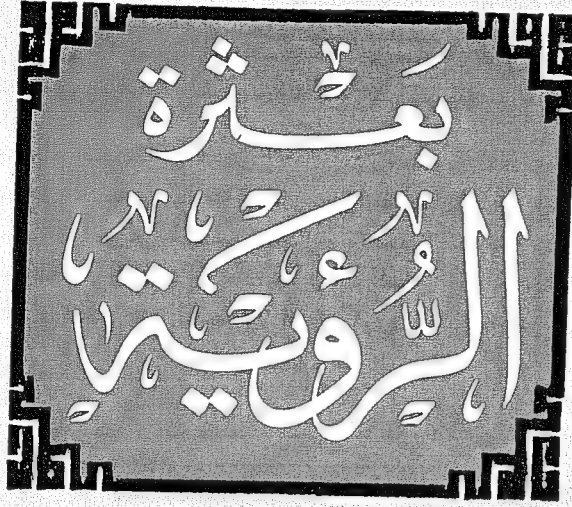 بَعثرة
الرُّؤية